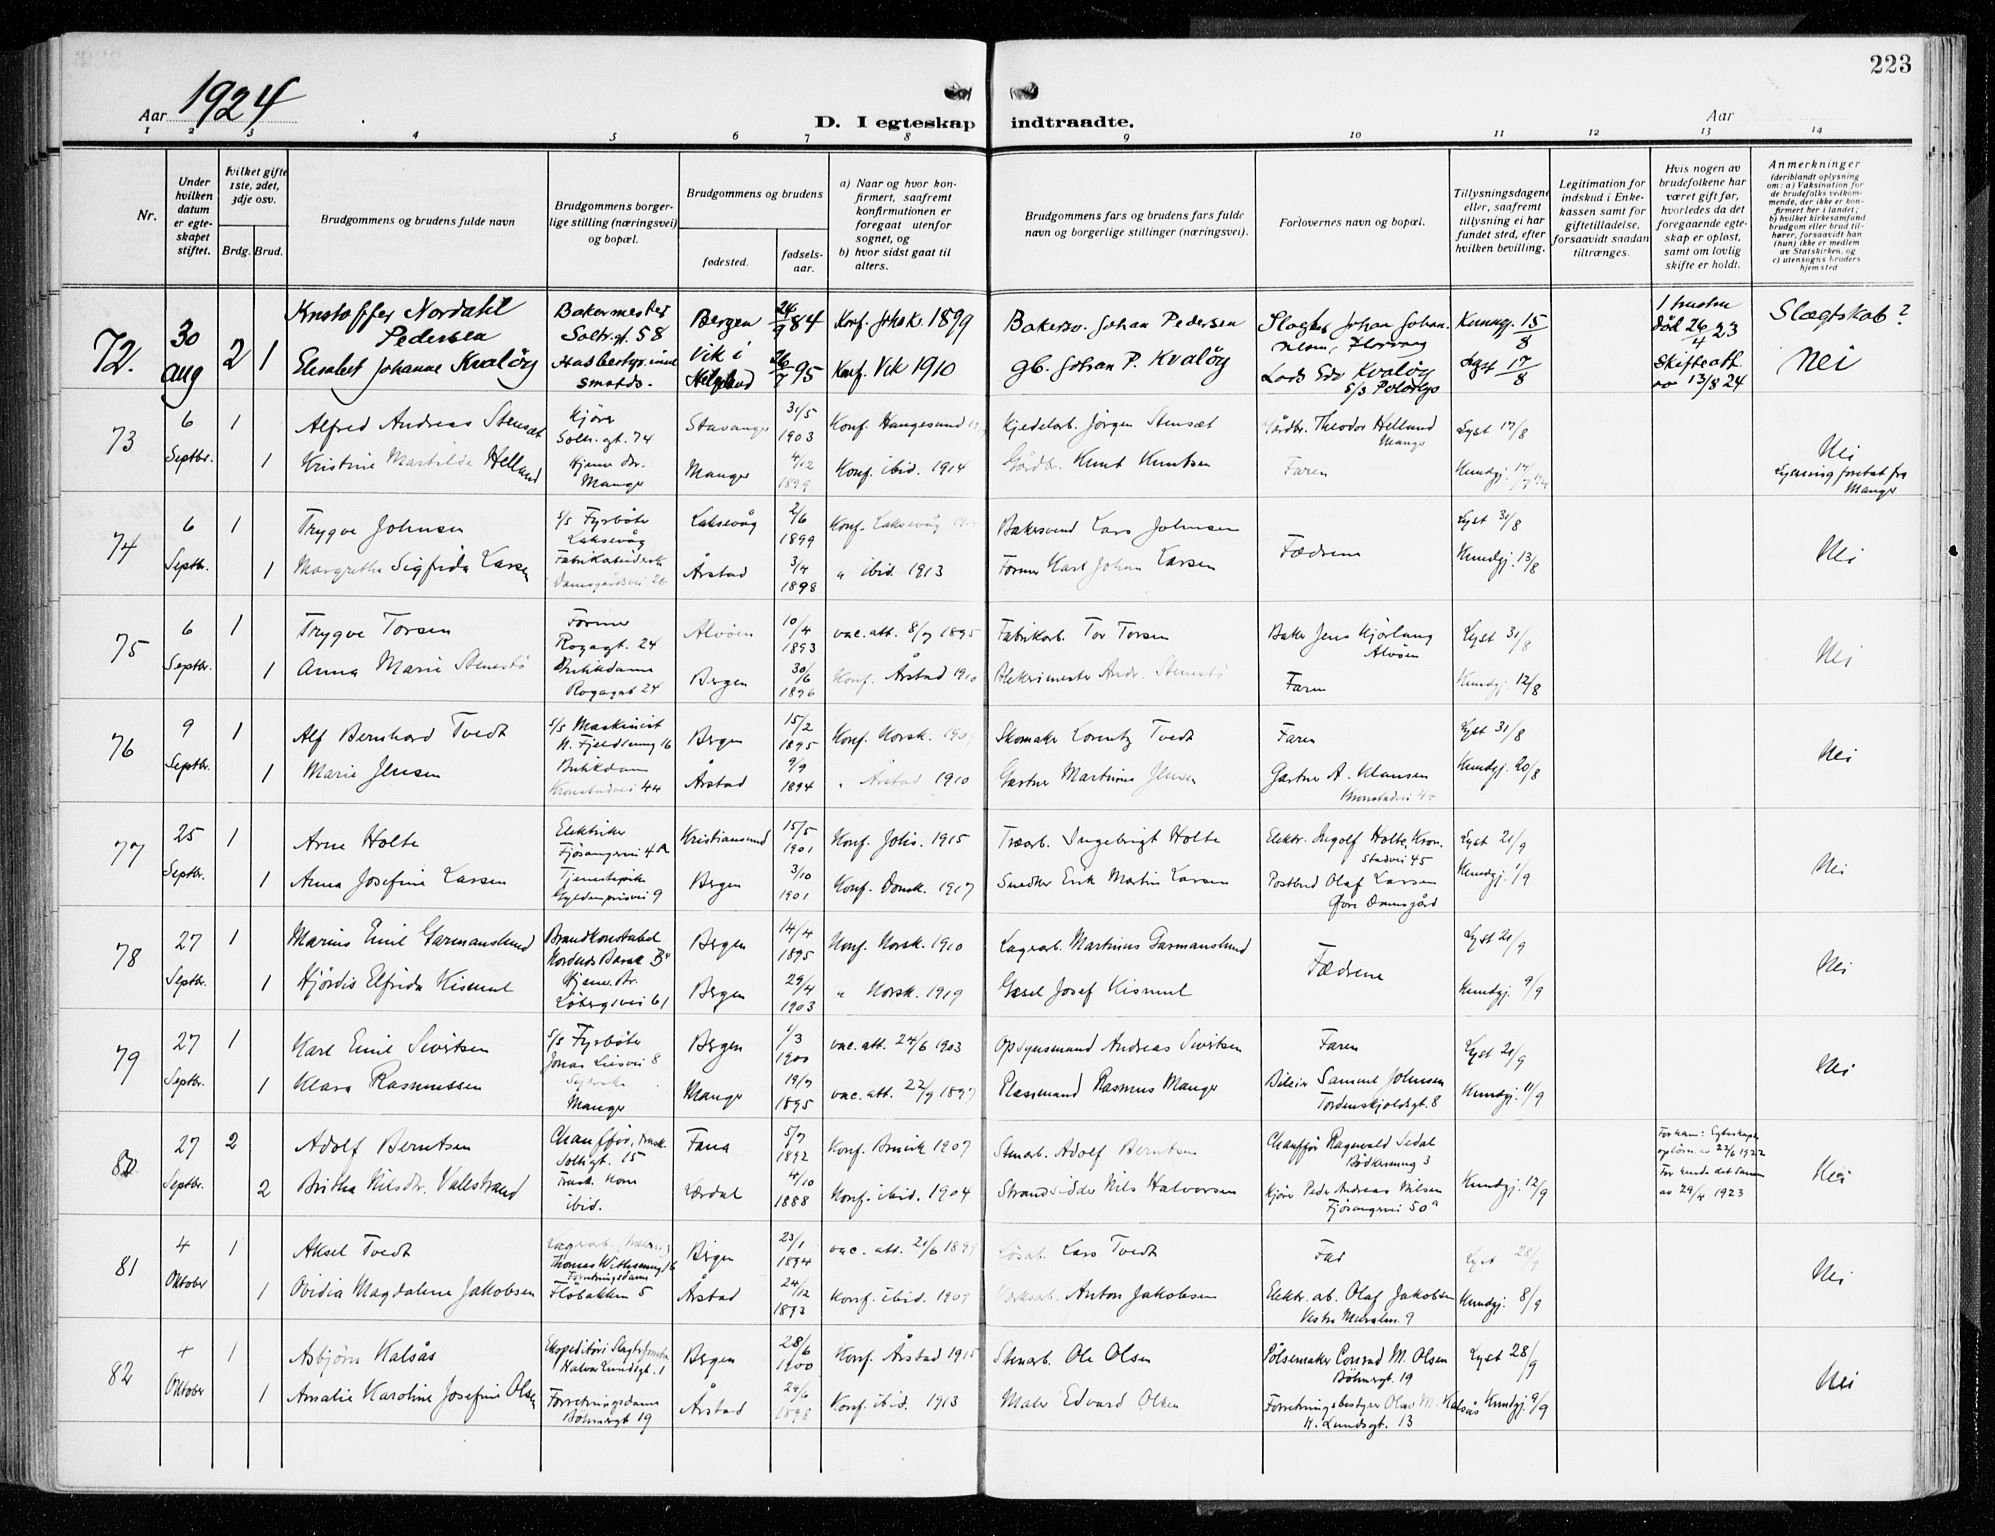 223
Aar 1924
D. I egteskap indtraadte.
Aar
1 2 3 4 5 6 7 8 9 10 11 12 13 14
Nr.
Under hvilken datum er egteskapet stiftet.
Hvilket gifte 1ste, 2det, 3dje osv.
Brdg. Brud.
Brudgommens og brudens fulde navn
Brudgommens borgerlige stilling (næringsvei) og bopæl.
Brudgommens og brudens
fødested.
fødselsaar.
a) Naar og hvor konfirmert, saafremt konfirmationen er foregaat utenfor sognet, og
b) hvor sidst gaat til alters.
Brudgommens fars og brudens fars fulde navn og borgerlige stillinger (næringsvei).
Forlovernes navn og bopæl.
Tillysningsdagene eller, saafremt tillysning ei har fundet sted, efter hvilken bevilling.
Legitimation for indskud i Enkekassen samt for giftetilladelse, forsaavidt saadan tiltrænges.
Hvis nogen av brudefolkene har været gift før, hvorledes da det foregaaende egteskap er opløst, samt om lovlig skifte er holdt.
Anmerkninger (deriblandt oplysning om: a) Vaksination for de brudefolks vedkommende, der ikke er konfirmert her i landet; b) hvilket kirkesamfund brudgom eller brud tilhører, forsaavidt han (hun) ikke er medlem av Statskirken, og c) utensogns bruders hjemsted
72. 30 aug 2 Kristoffer Nordahl Pedersen Bakermester Soltr.gt. 58 Bergen 24/9 84 Konf. Johs k. 1899 Bakersv. Johan Pedersen Kunng. 15/8 1 hustru død 26/4 23 Slægtskab?
1 Elisabet Johanne Kvaløy Vik i Helgeland 26/7 95 Konf. Vik 1910 gb. Johan P. Kvaløy Lyst 17/8 Skifteatt. 13/8 24 Nei
73 6 Septbr. 1 Alfred Andreas Stensæt Kjører Soltr.gt. 74 Stavanger 31/5 1903 Konf. Haugesund Kjedelarb. Jörgen Stensæt Gårdbr. Theodor Helland Manger Lyst 17/8
1 Kristine Martilde Helland Hjemv. Manger Manger 4/12 1899 Konf. ibid. 1914 Gårdb. Knut Knutsen Faren Kundgj. Nei Lysning foretat fra Manger
74 6 Septbr. 1 Trygve Johnsen s/s Fyrböter Laksevåg Laksevåg 2/6 1899 Konf. Laksevåg Bakersvend Lars Johnsen Fædrene Lyst 31/8
1 Margrethe Sigfrida Larsen Damsgårdsvei 26 Årstad 3/4 1898 " ibid. 1913 Former Karl Johan Larsen Kundgj. 13/8 Nei
75 6 Septbr. 1 Trygve Torsen Former Rogagt. 24 Alvöen 10/4 1893 vac. att. 8/7 1895 Fabrikarb. Tor Torsen Baker Jens Kjörlaug Alvöen Lyst 31/8
1 Anna Marie Stenestö Butikdame Rogagat 24 Bergen 30/6 1896 Konf. Årstad 1910 Blekksmester Andr. Stenestö Faren Kundgj. 12/8 Nei
76 9 Septbr. 1 Alf Bernhard Tvedt s/s Maskinist Bergen 15/2 1895 Konf. Korsk. Skomaker Lorentz Tvedt Faren Lyst 31/8
1 Marie Jensen Butikdame Kronstadvei 44 Årstad 9/9 1894 " Årstad 1910 Gartner Martinus Jensen Gartner A. Klausen Kronstadvei 44 Kundgj. 20/8 Nei
77 25 Septbr. 1 Arne Holte Elektriker Fjösangervei 4a Kristiansund 15/5 1901 Konf. Johs. 1915 Træarb. Ingebrigt Holte Elektr. Ingolf Holte, Kronstadvei 45 Lyst 21/9
1 Anna Josefine Larsen Tjenestepike Gyldenprisvei 9 Bergen 3/10 1901 Konf. Domk. 1917 Snedker Erik Martin Larsen Postbud Olaf Larsen Øvre Damsgård Kundgj. 1/9 Nei
78 27 Septbr. 1 Marius Emil Garmanslund Brandkonstabel Bergen 14/4 1895 Konf. Korsk. 1910 Lagerarb. Martinus Garmanslund Fædrene Lyst 21/9
1 Hjördis Elfrida Kismul Hjemv. Löbergsvei 61 Bergen 29/4 1903 " Korsk. 1919 Josef Kismul Kundgj. 9/9 Nei
79 27 Septbr. 1 Karl Emil Sivertsen s/s Fyrböter Jonas Liesvei 8 Bergen 1/3 1900 vac. att. 24/6 1903 Opsynsmand Andreas Sivertsen Faren Lyst 21/9
1 Klara Rasmussen Manger Manger 19/7 1895 vac. att. 22/9 1897 Plassmand Rasmus Manger Bileier Samuel Johnsen Tordenskjoldsgt. 8 Kundgj. 11/9 Nei
80 27 Septbr. 2 Adolf Berntsen Chauffør, Fana 5/7 1892 Konf. 1907 Stenarb. Adolf Berntsen Chauffør Ragnvald Sedal Bödkersmug 3 For ham: Egteskapet opløst 22/6 1922
2 Britha Nilsdtr. Vallestrand ibid. Lærdal 4/10 1888 Konf. ibid. 1904 Strandsidder Nils Halvorsen Kjører Peder Andreas Nilsen Fjösangervei 50a Kundgj. 12/9 For hende det samme av 29/4 1923 Nei
81 4 Oktober 1 Aksel Tvedt Bergen 23/1 1894 vac. att. 21/6 Lars Tvedt Lyst 28/9
1 Ovidia Magdalene Jakobsen Forretningsdame Flöbakken 5 Årstad 24/12 1893 Konf. ibid. Anton Jakobsen Elektr. arb. Olaf Jakobsen Kundgj. 8/9 Nei
82 4 Oktober 1 Asbjörn Kalsås Halvor Lundsgt. 1 Bergen 28/6 1900 Konf. Årstad 1915 Stenarb. Ole Olsen Pölsemaker Conrad M. Olsen Böhmergt. 19 Lyst 28/9
1 Amalie Karoline Josefine Olsen Forretningsdame Böhmergt 19 Årstad 29/6 1898 Konf. ibid. 1913 Maler Edvard Olsen Forretningsbestyrer Olav M. Kalsås H. Lundsgt. 13 Kundgj. 9/9 Nei